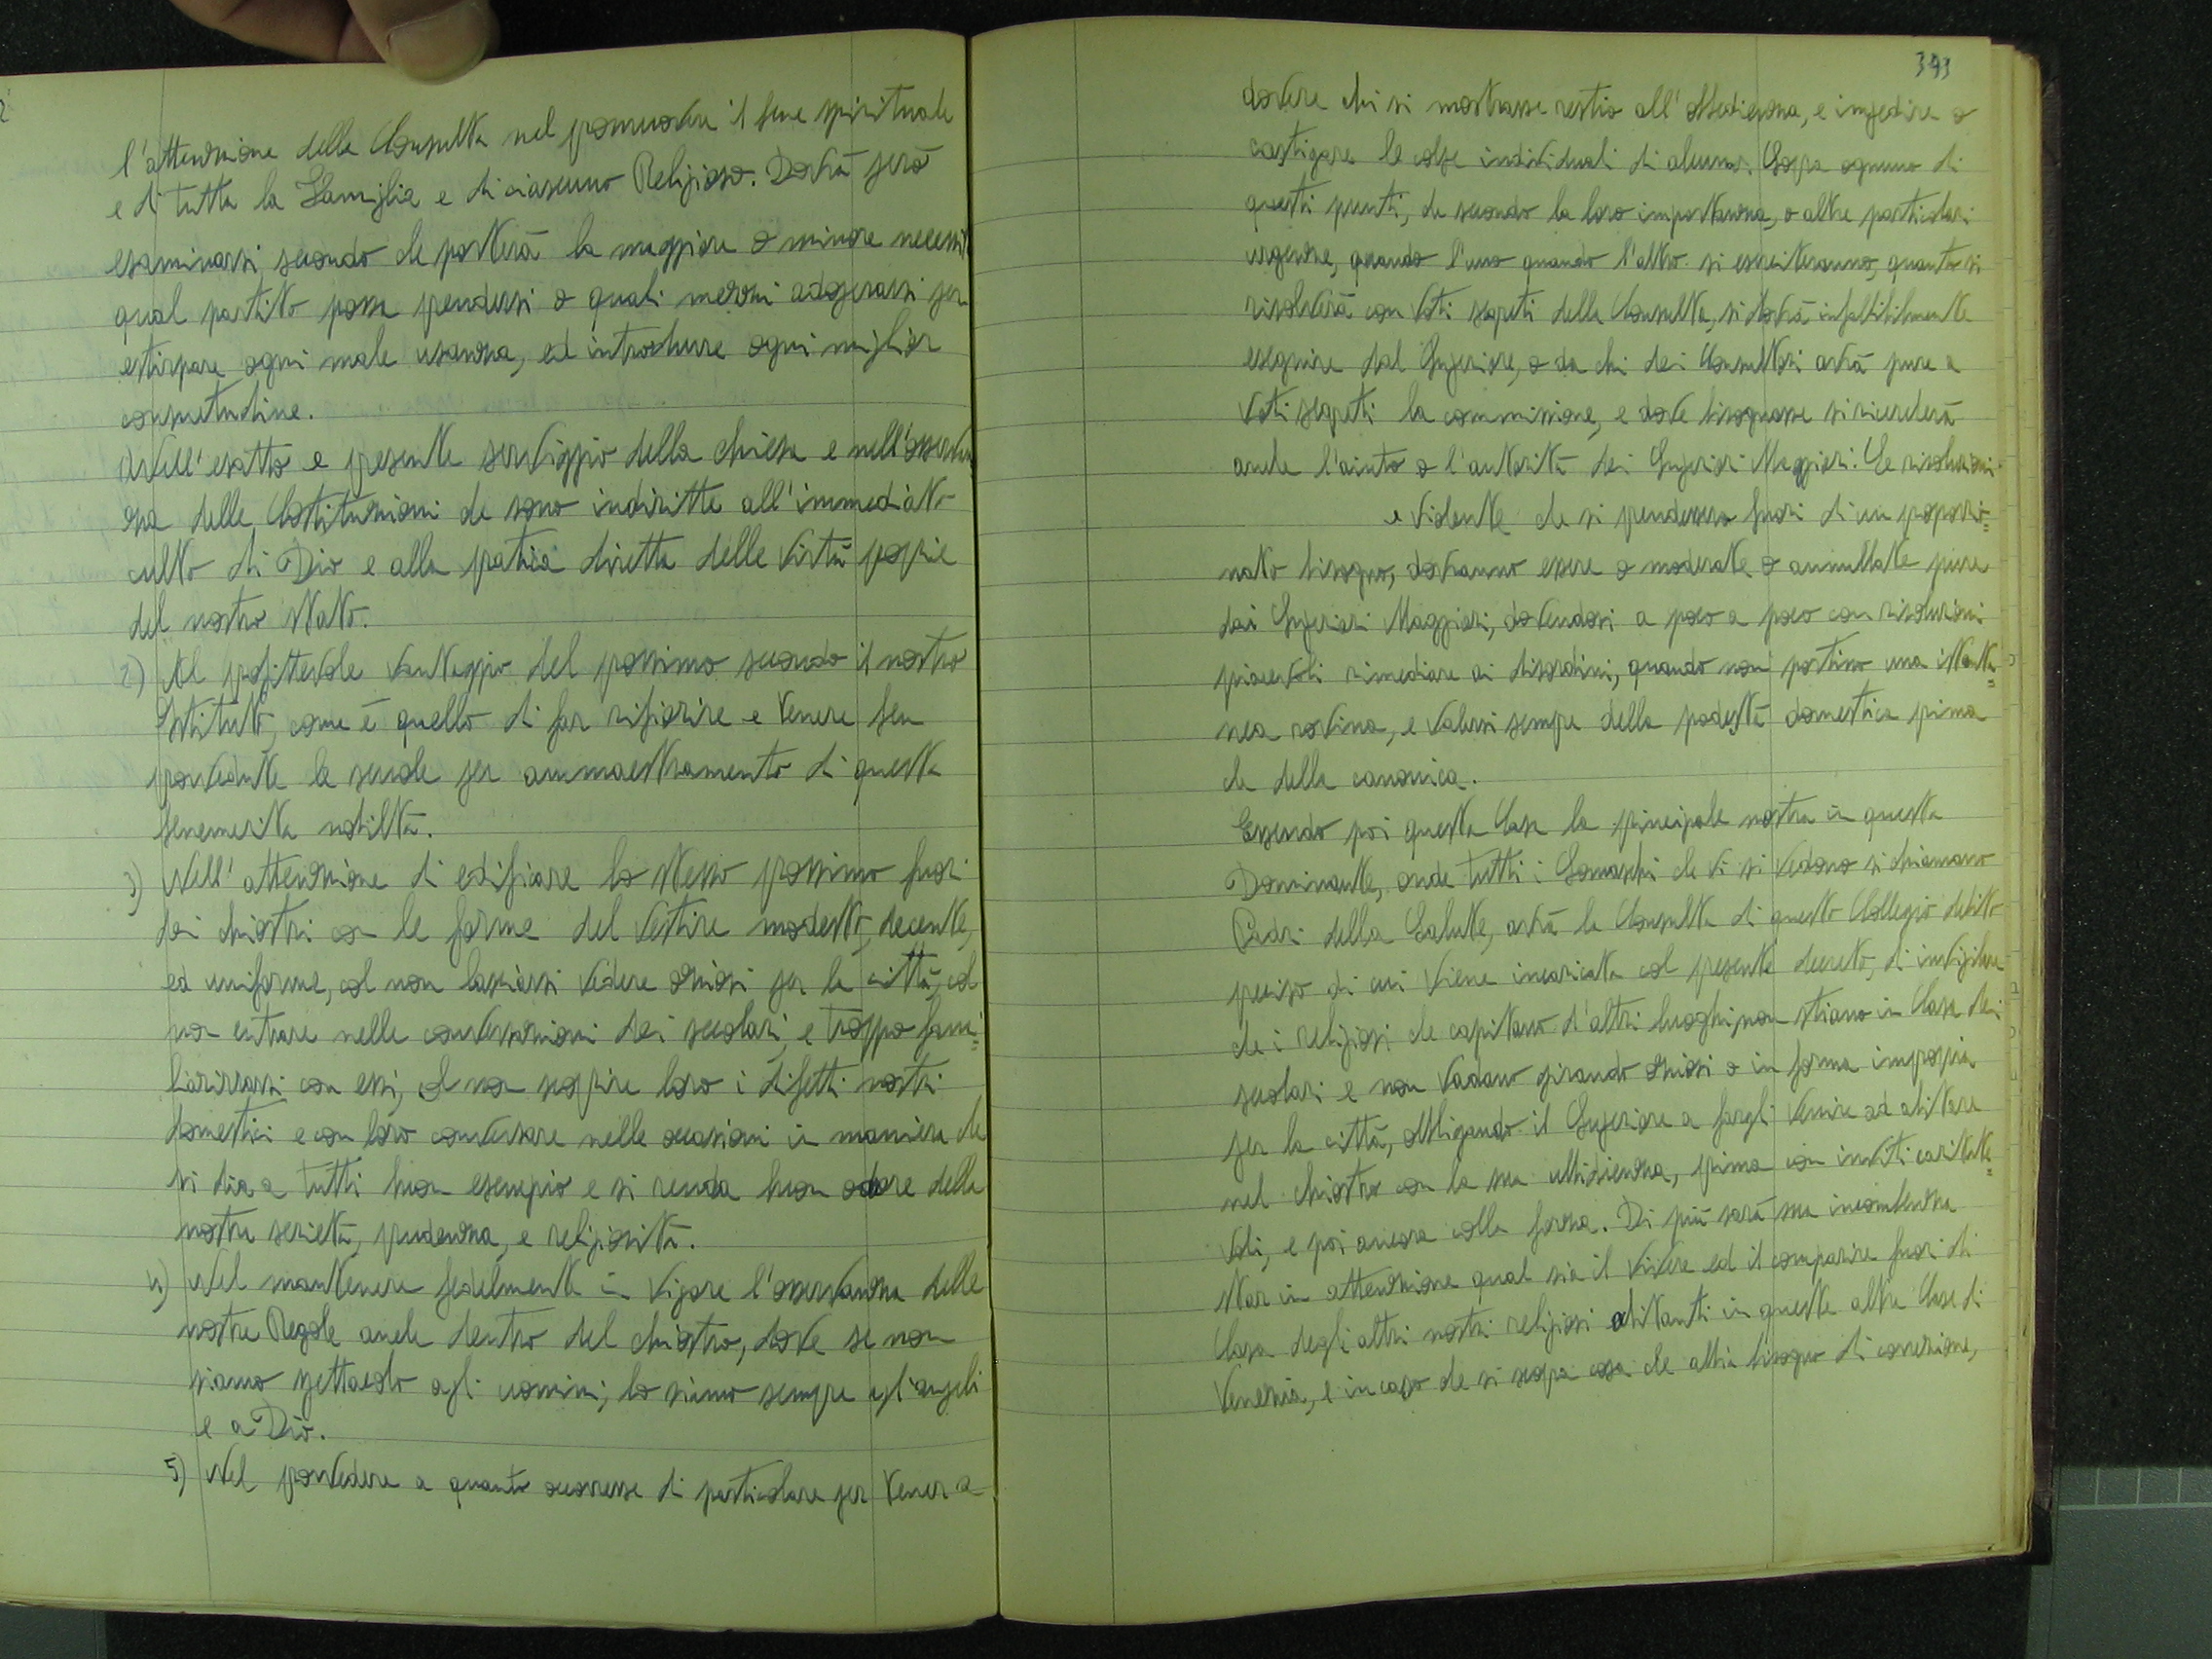 l'attenzione della Consulta nel promuovere il bene spirituale
e di tutta la Famiglia e di ciascuno Religioso. Dovrà però
esaminarsi, secondo che porterà la maggiore o minore necessi
qual partito possa prendersi o quali mezzi adoperarsi per
estirpare ogni mala usanza, ed introdurre ogni miglior
consuetudine.
Nell'esatto e presente serviggio della chiesa e nell'osservan
za delle Costituzioni che sono indiritte all'immediato
culto di Dio e alla pratica diretta delle virtù proprie
del nostro stato.
2) Al profittevole vantaggio del prossimo secondo il nostro
Istituto, come è quello di far rifiorire e tenere ben
provvedute le scuole per ammaestramento di questa
benemerita nobiltà.
3) Nell'attenzione di edificare lo stesso prossimo fuori
dei chiostri con le forme del vestire modesto, decente,
ed uniforme, col non lasciarsi vedere oziosi per la città, col
non entrare nelle conversazioni dei secolari, e troppo fami=
liarizzarsi con essi, col non scoprire loro i difetti nostri
domestici e con loro conversare nelle occasioni in maniera che
si dia a tutti buon esempio e si renda buon odore della
nostra serietà, prudenza, e religiosità.
4) Nel mantenere fedelmente in vigore l'osservanza delle
nostre Regole anche dentro del chiostro, dove se non
siamo spettacolo agli uomini, lo siamo sempre agl'angeli
e a Dio.
5) Nel provvedere a quanto occorresse di particolare per tener a
393
dovere chi si mostrasse restio all'obbedienza, e impedire o
castigare le colpe individuali di alcuno. Sopra ognuno di
questi punti, che secondo la loro importanza, o altre particolari
urgenze, quando l'uno quando l'altro si esamineranno, quanto si
risolverà con voti segreti della Consulta, si dovrà infallibilmente
eseguire dal Superiore, o da chi dei Consultori avrà pure a
voti segreti la commissione, e dove bisognasse si ricercherà
anche l'aiuto o l'autorità dei Superiori Maggiori. Le risoluzioni
e vidente che si prendessero fuori di un proporzio=
nato bisogno, dovranno essere o moderate o annullate pure
dai Superiori Maggiori, dovendosi a poco a poco con risoluzioni
piacevoli rimediare ai disordini, quando non portino una istanta=
nea rovina, e valersi sempre della podestà domestica prima
che della canonica.
Essendo poi questa Casa la principale nostra in questa
Dominante, onde tutti i Somaschi che vi si vedono si chiamano
Padri della Salute, avrà la Consulta di questo Collegio debito
preciso di cui viene incaricata col presente decreto, di invigilare
che i religiosi che capitano d'altri luoghi non stiano in Casa dei
secolari e non vadano girando oziosi o in forma impropria
per la città, obbligando il Superiore a fargli venire ad abitare
nel chiostro con la sua ubbidienza, prima con inviti caritate=
voli, e poi ancora colla forza. Di più sarà sua incombenza
star in attenzione qual sia il vivere ed il comparire fuori di
Casa degli altri nostri religiosi abitanti in queste altre Case di
Venezia, e in caso che si scopra cosa che abbia bisogno di correzione,